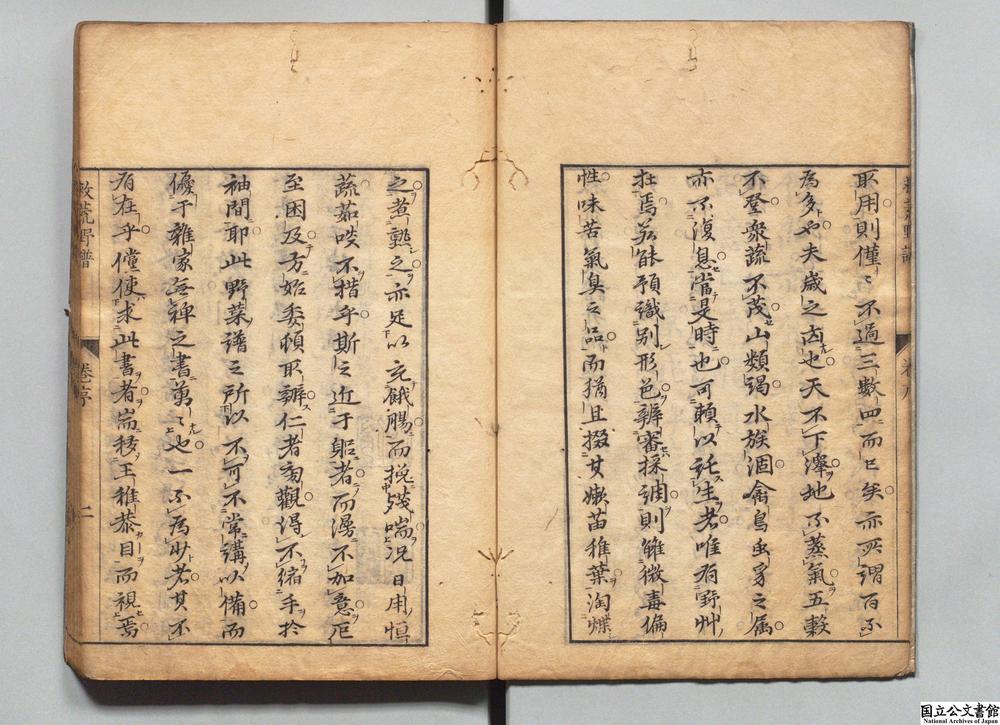 取用則僅〻不過三數四而已矣亦所謂百不
為多也夫歳之凶也天不下澤地不蒸氣五穀
不登衆蔬不茂山頽竭水族涸禽鳥虫豸之属
亦不復息當是時也可頼以託生者唯有野艸
在焉若能預識別形色辨審採調則雖微毒偏
性味苦氣臭之品而猶且掇其嫩苗稚葉淘煠
之煮熟之亦足以充餓腸而挽殘喘况日用恒
蔬茹啖不措乎斯之近于躬者而漫不加意厄
至困及方始委頓取辨仁者匆觀得不縮手於
袖間耶此野菜譜之所以不可不常講以備而
優于雜家無裨之書萬〻也一不為少者其不
有在乎僮使求此書者耑移王稚恭目而視焉
救荒野譜
巻序
二
国立公文書館
National Archives of Japan